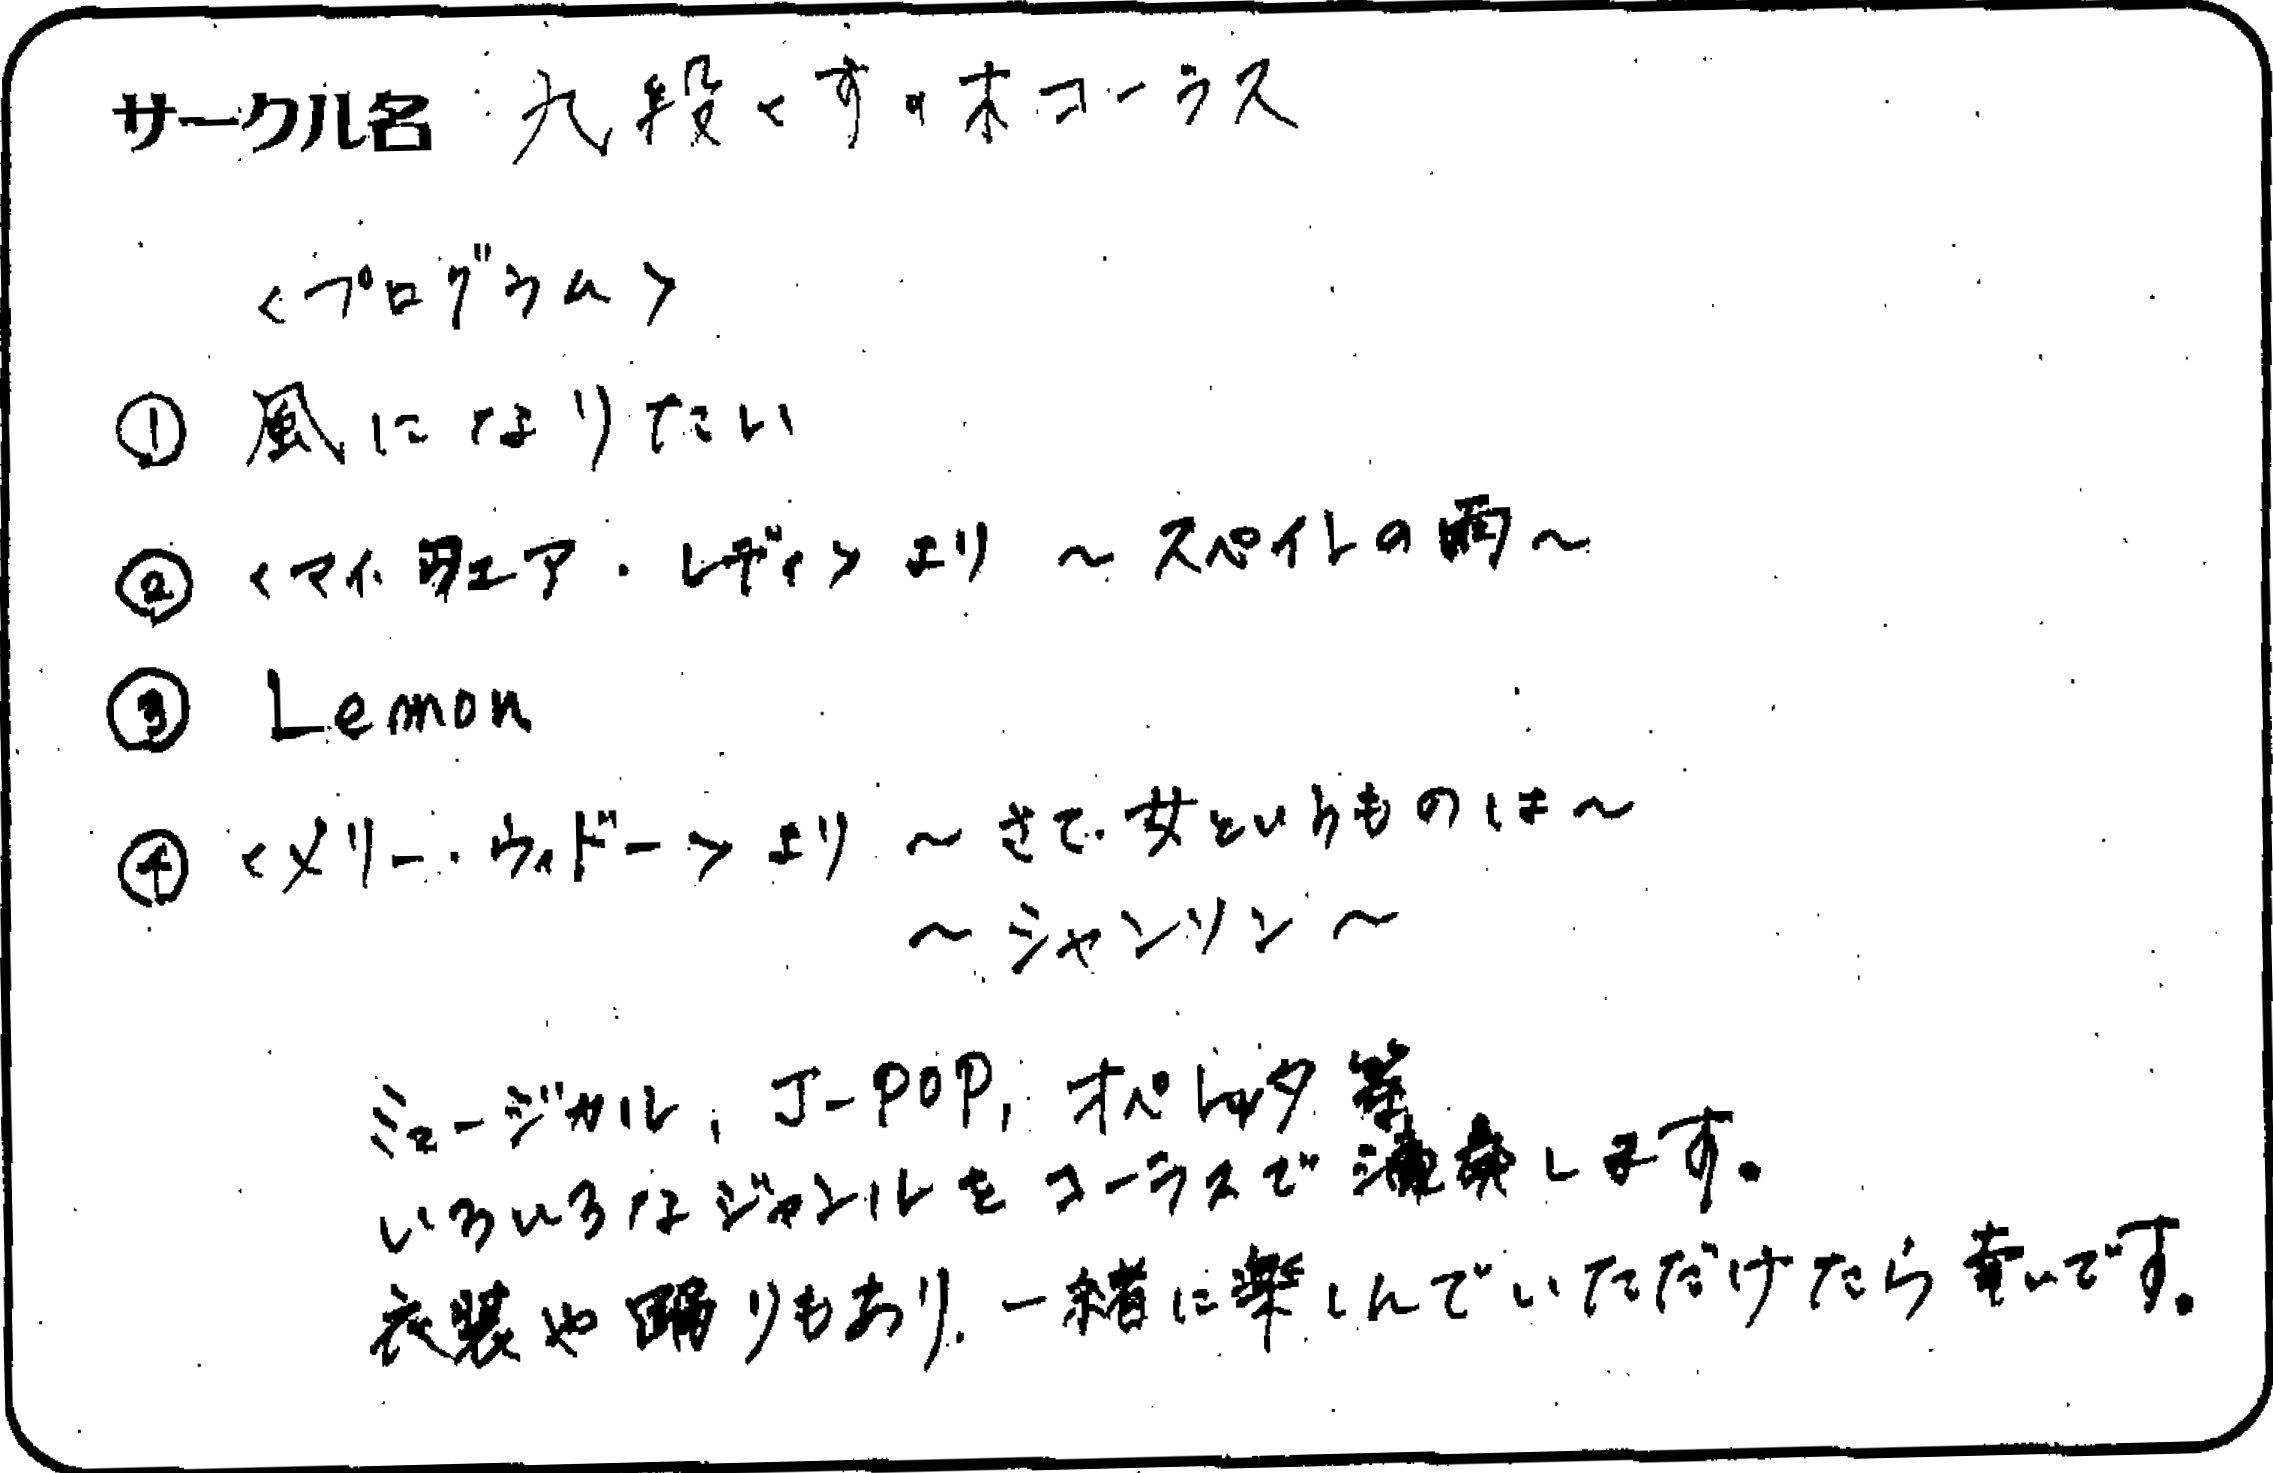 サークル名 九段くすの木コーラス
<プログラム>
① 風になりたい
② <マイ・フェア・レディ>より ～スペインの雨～
③ Lemon
④ <メリー・ウィドー>より ～さて、女というものは～
～シャンソン～
ミュージカル、J-POP、オペレッタ等
いろいろなジャンルをコーラスで演奏します。
衣装や踊りもあり、一緒に楽しんでいただけたら幸いです。